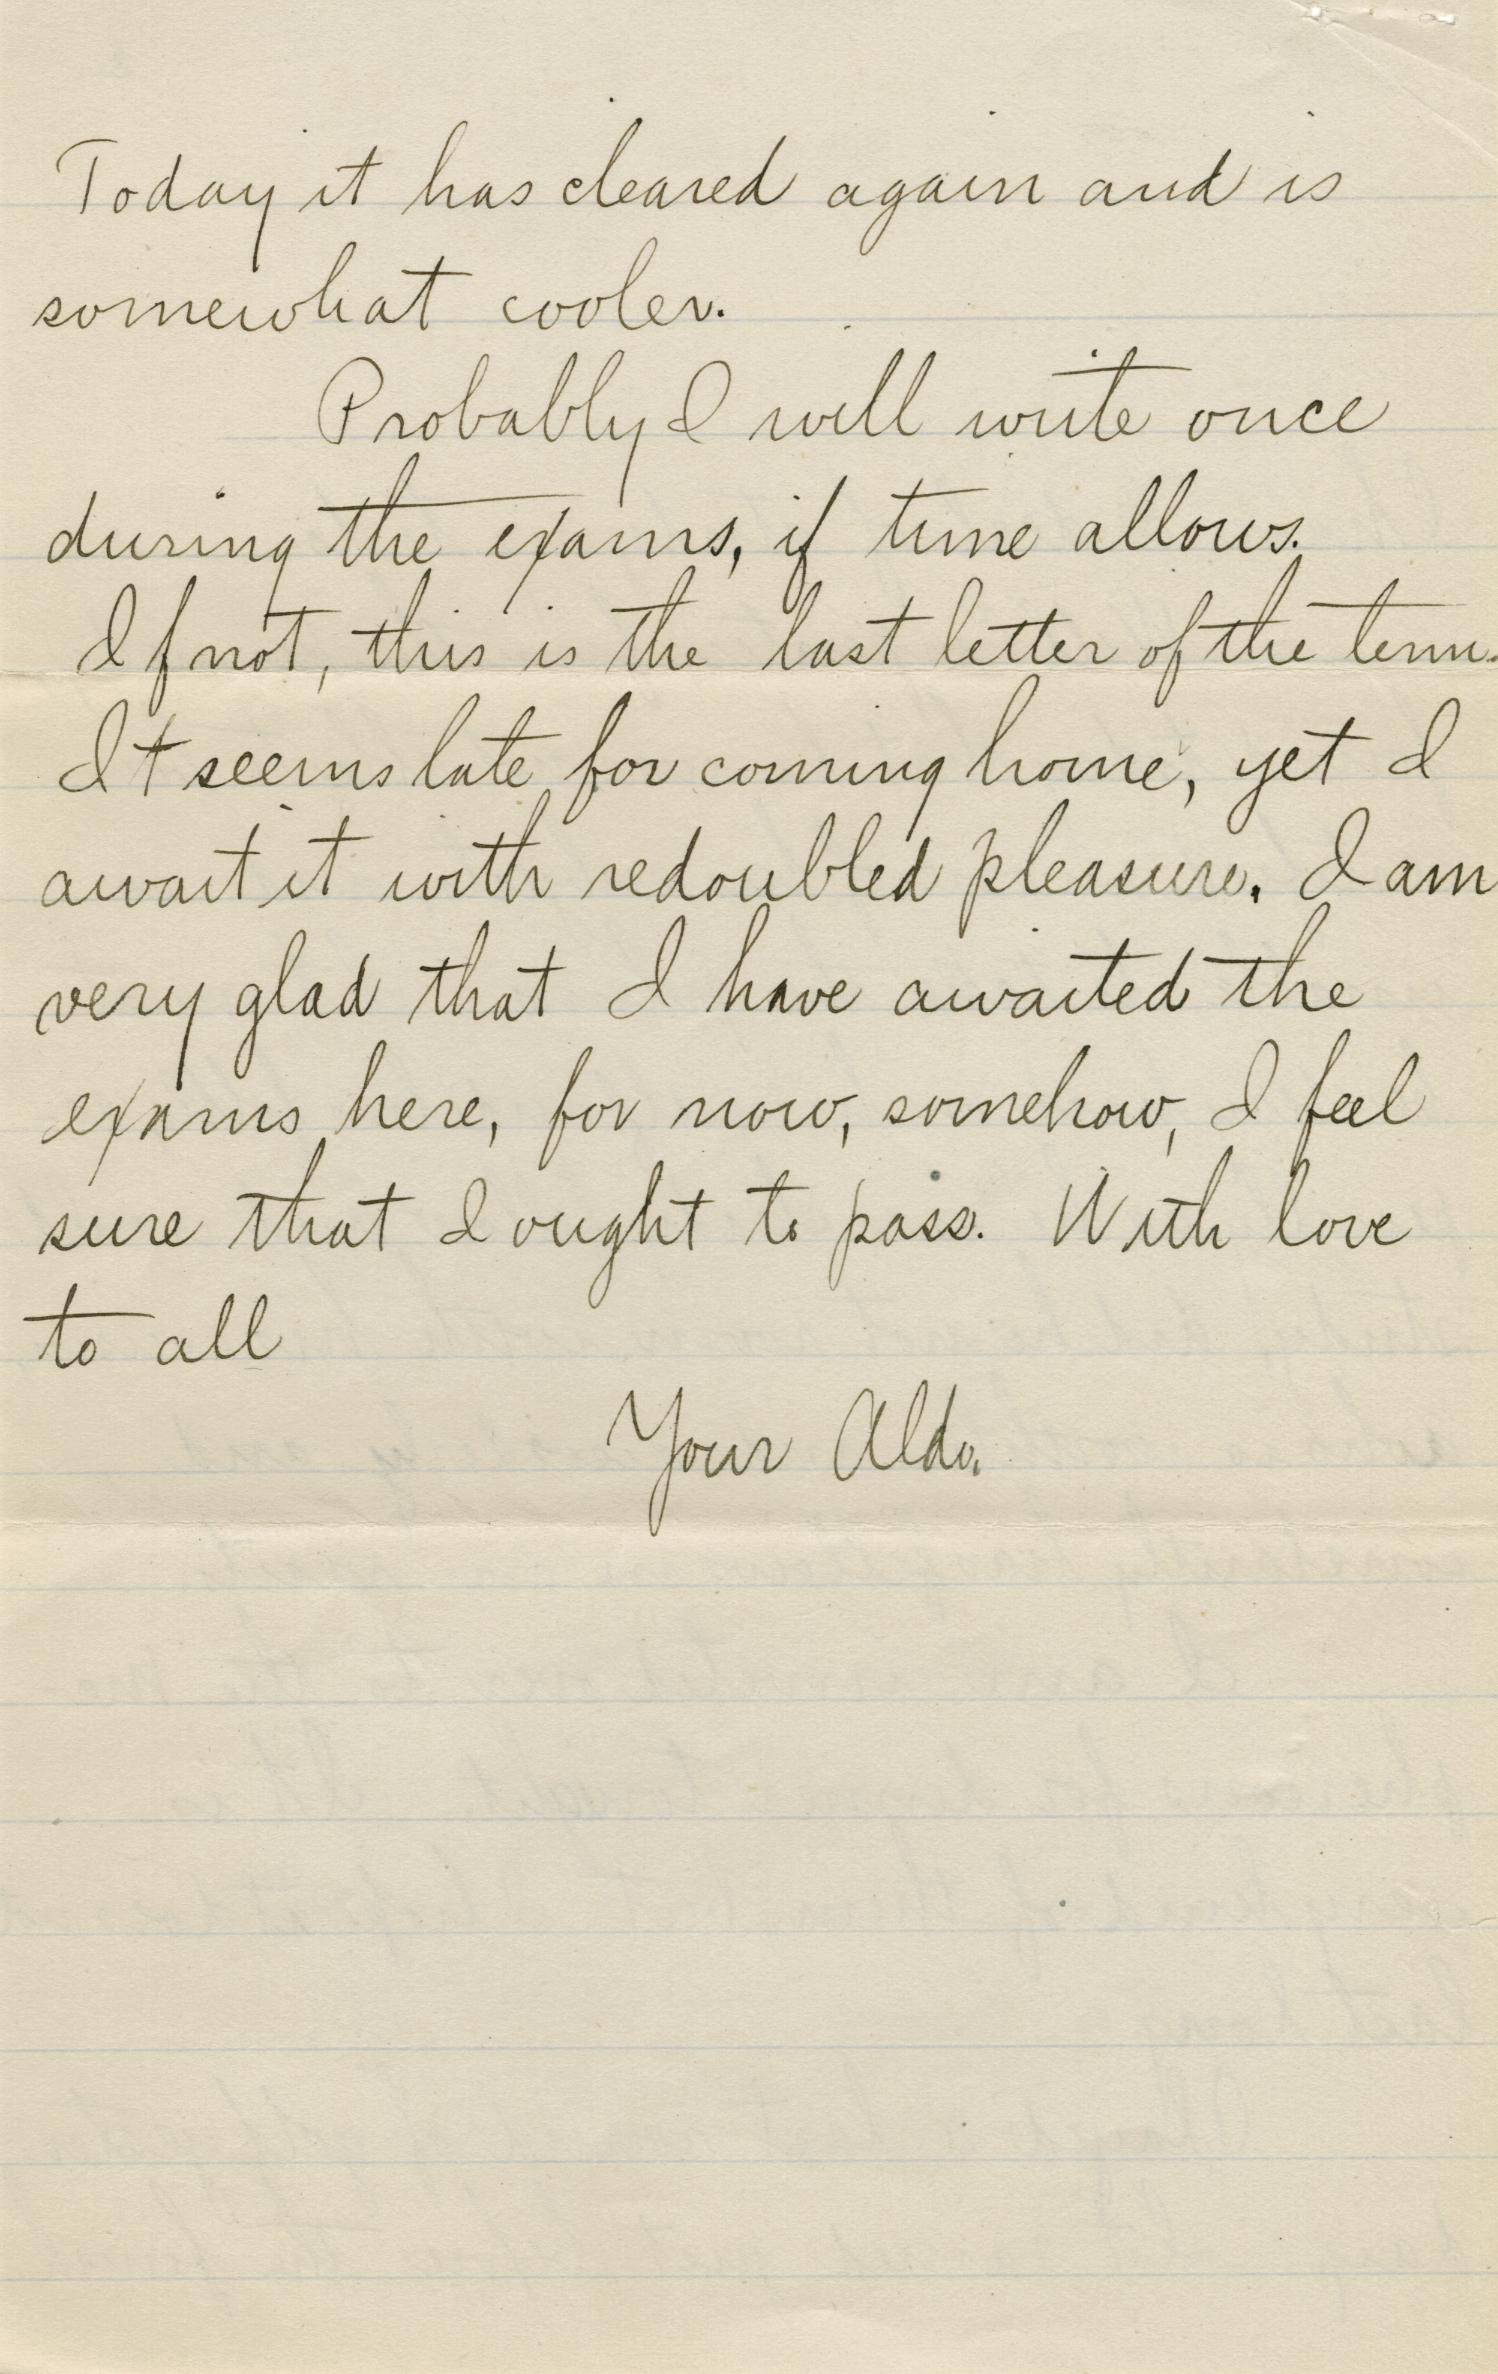 Today it has cleared again and is
somewhat cooler.
Probably I will write once
during the exams, if time allows.
If not, this is the last letter of the term.
It seems late for coming home, yet I
await it with redoubled pleasure. I am
very glad that I have awaited the
exams here, for now, somehow, I feel
sure that I ought to pass. With love
to all
Your Aldo.